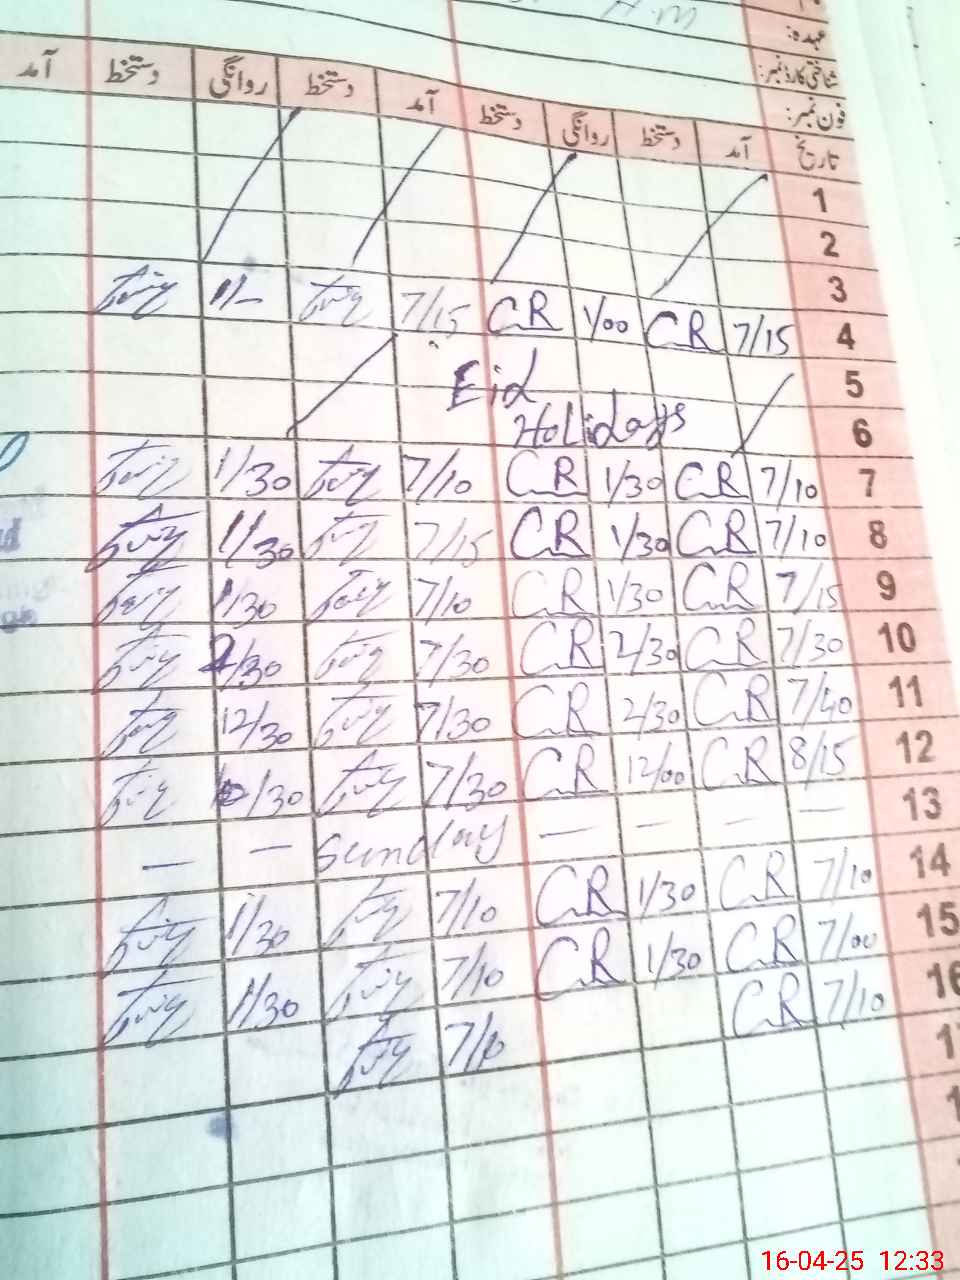 A.m
عہدہ:
شناختی کارڈ نمبر:
فون نمبر:
تاریخ آمد دستخط روانگی دستخط آمد دستخط روانگی دستخط آمد
1
2
3
4 7/15 CR 1/00 CR 7/15 1/-
5 Eid
6 Holidays
7 7/10 CR 1/30 CR 7/10 1/30
8 7/10 CR 1/30 CR 7/15 1/30
9 7/15 CR 1/30 CR 7/10 1/30
10 7/30 CR 2/30 CR 7/30 2/30
11 7/40 CR 2/30 CR 7/30 12/30
12 8/15 CR 12/00 CR 7/30 /30
13 — — — — Sunday — —
14 7/10 CR 1/30 CR 7/10 1/30
15 7/00 CR 1/30 CR 7/10 1/30
16 7/10 CR 7/10
16-04-25 12:33